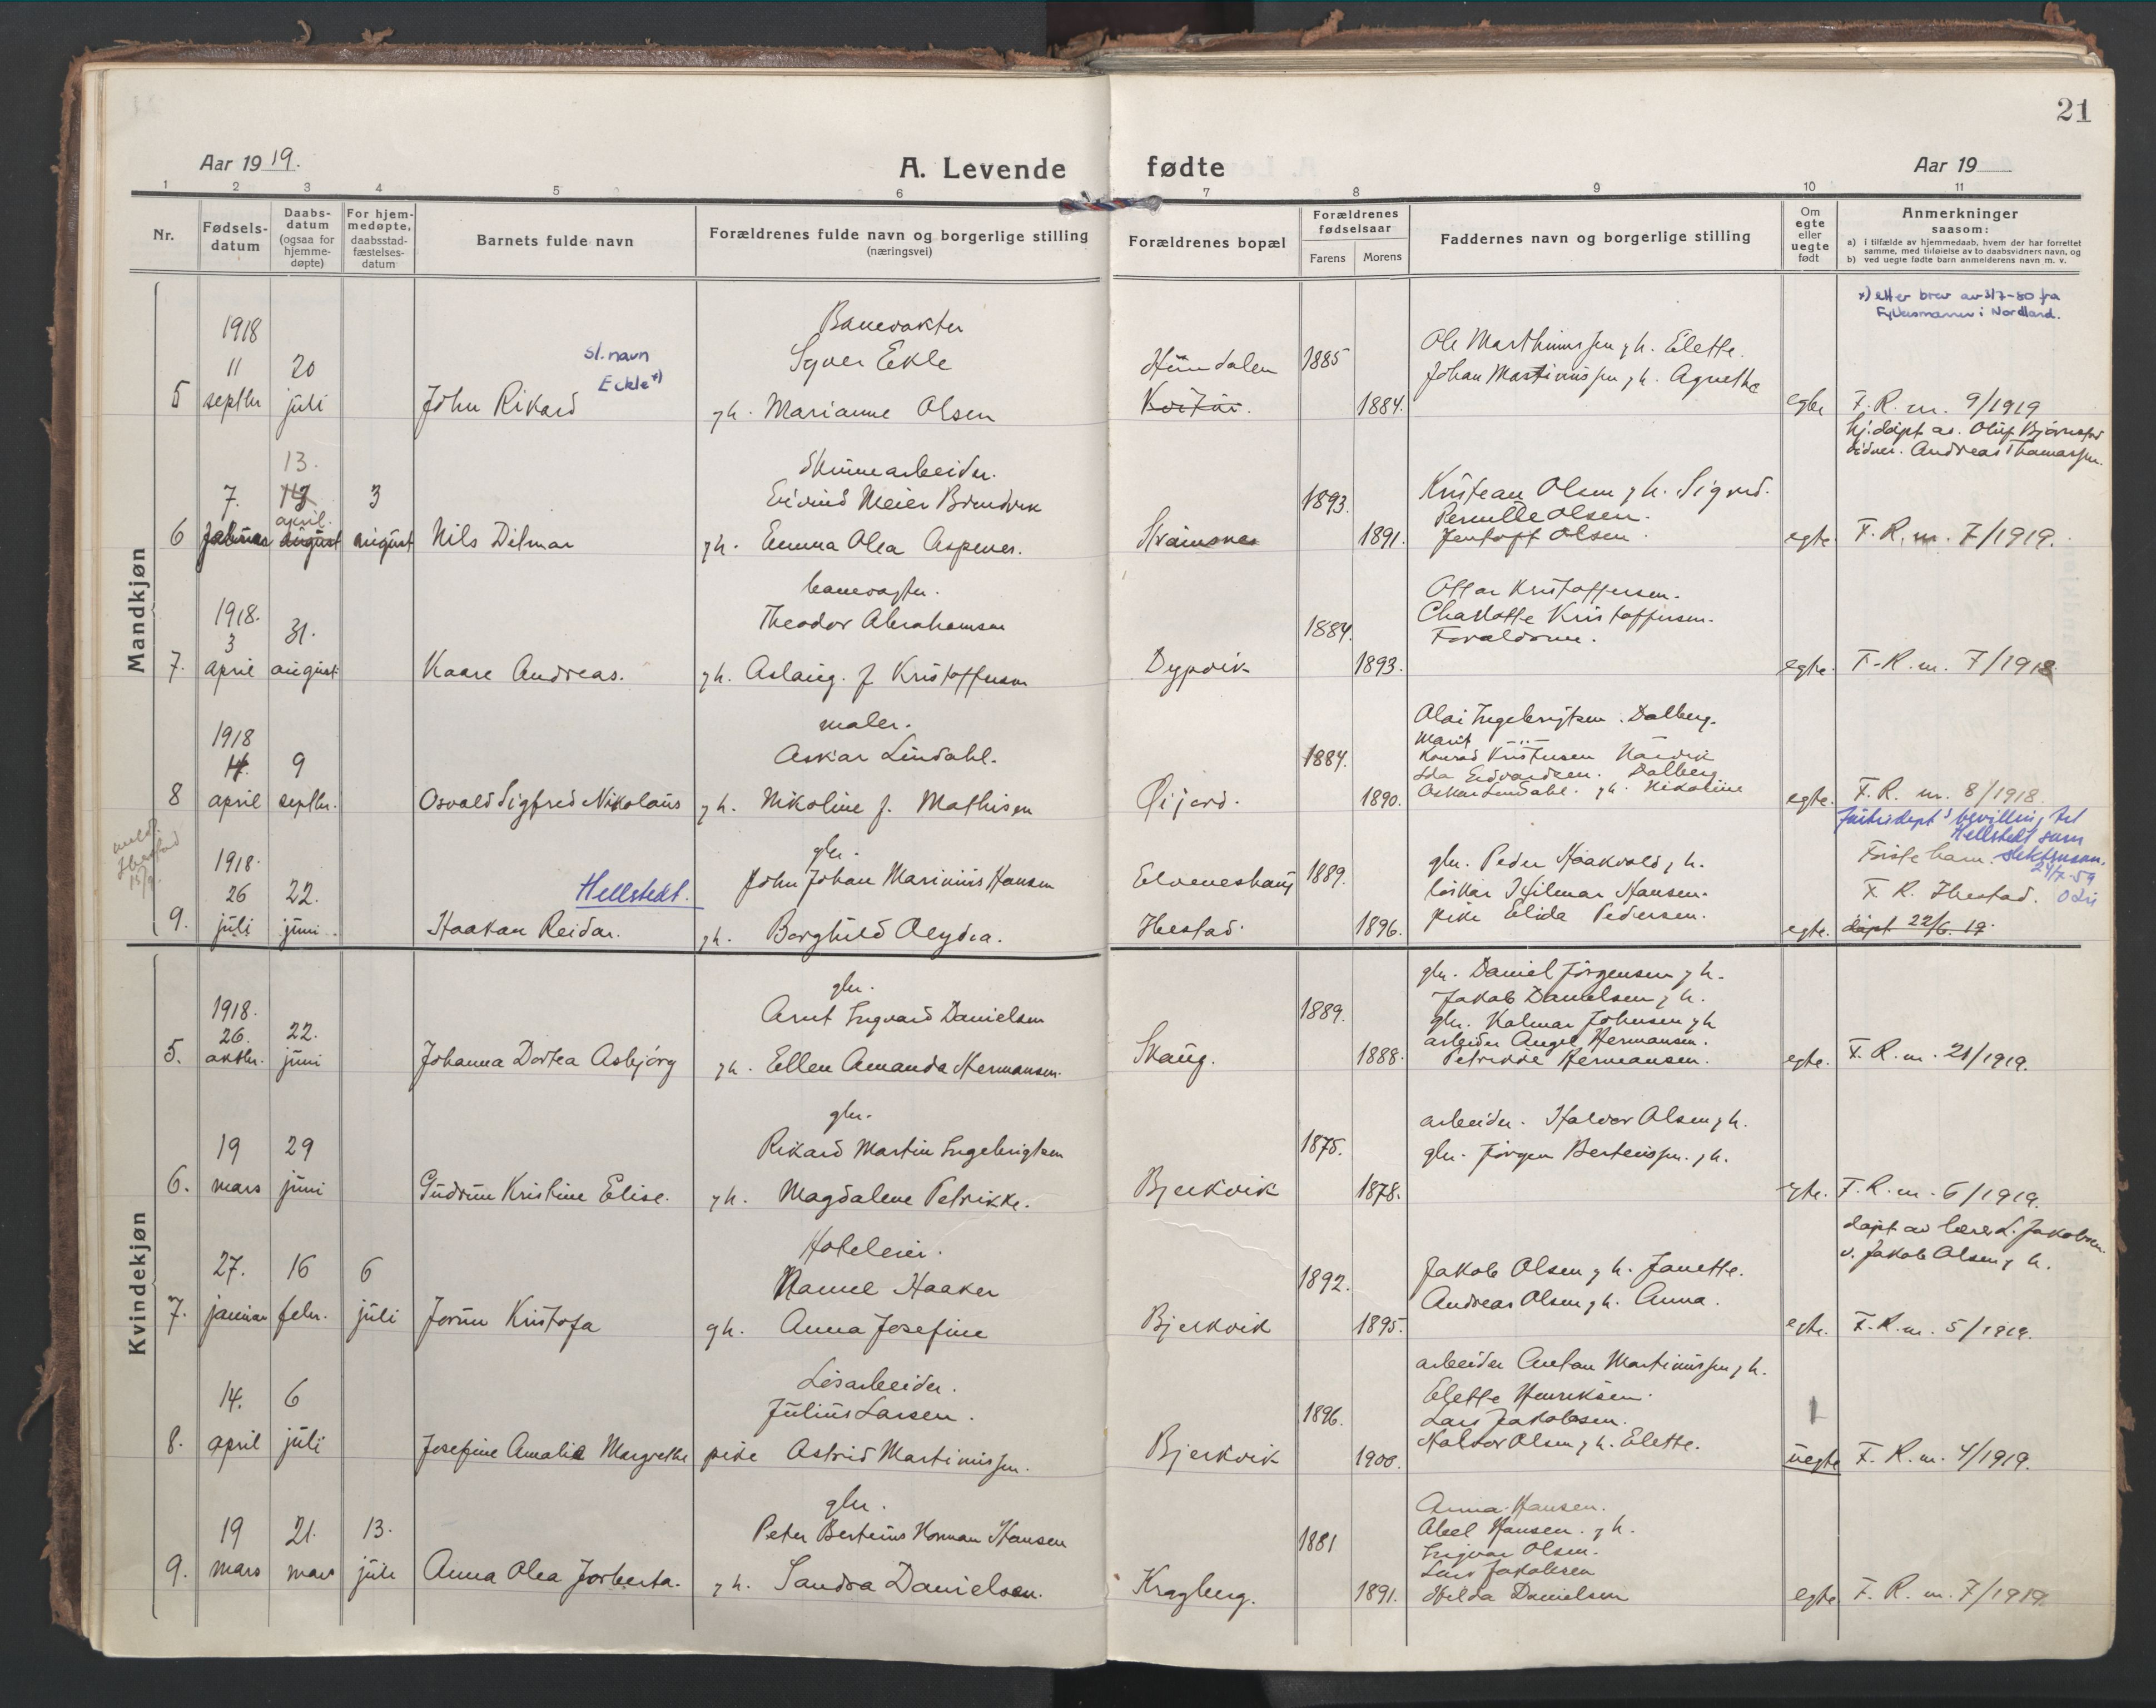 21
Aar 1919.
A. Levende fødte
Aar 19
1 2 3 4 5 6 7 8 9 10 11
Nr.
Fødsels-
datum
Daabs-
datum
(ogsaa for
hjemme-
døpte)
For hjem-
medøpte,
daabsstad-
fæstelses-
datum
Barnets fulde navn
Forældrenes fulde navn og borgerlige stilling
(næringsvei)
Forældrenes bopæl
Forældrenes
fødselsaar
Farens Morens
Faddernes navn og borgerlige stilling
Om
egte
eller
uegte
født
Anmerkninger
saasom:
a) i tilfælde av hjemmedaab, hvem der har forrettet
samme, med tilføielse av to daabsvidners navn, og
b) ved uegte fødte barn anmelderens navn m. v.
Mandkjøn
x) etter brev av 3/7-80 fra
Fylkesmannen i Nordland.
1918
11 septbr
20 juli
5
John Rikard
Sl. navn
Eckle x)
Banevakter
Syver Ekle
g h. Marianne Olsen
Hundalen
1885
1884.
Ole Marthinussen g h. Elette.
Johan Martinussen g h. Agnethe
egte
F. R. nr. 9/1919
hj. døpt av Oluf Bjørnstad
vidner. Andreas Thomassen.
6
7. februar
13. april.
3 august
Nils Dilmar
Skinnearbeider.
Eivind Meier Brendvik
g h. Emma Olea Aspenes.
Straumsnes
1893.
1891.
Kristean Olsen g h. Sigrid.
Pernille Olsen.
Jentoft Olsen.
egte
F. R. nr. 7/1919.
1918.
7.
3 april
31. august
Kaare Andreas.
banevogter.
Theodor Abrahamsen
g h. Aslaug f. Kristoffersen
Dypvik
1884.
1893.
Ottar Kristoffersen.
Charlotte Kristoffersen.
Forældrene.
egte.
F. R. nr. 7/1918
1918
8
14. april
9 septbr.
Osvald Sigfred Nikolaus
maler.
Oskar Lindahl.
g h. Nikoline f. Mathisen
Øijord.
1884.
1890.
Olai Ingebrigtsen. Dalberg.
Marit -"-
Konrad Kristensen Narvik
Ida Edvardsen. Dalberg
Oskar Lindahl. g h. Nikoline
egte.
F. R. nr. 8/1918.
Justisdept's bevilling til
Hellstedt som
slektsnavn.
24/7-59
Første barn.
1918.
9.
26 juli
22. juni.
Haakan Reidar.
Hellstedt.
gbr.
John Johan Marinius Hansen
g h. Borghild Olydia.
Elveneshaug
Ibestad.
1889.
1896.
gbr. Peder Haakvold g h.
Hilmar Hansen.
pike Elida Pedersen.
egte.
F. R. Ibestad.
døpt 22/6. 19.
Kvindekjøn
1918.
5.
26. oktbr.
22. juni
Johanna Dortea Asbjørg
gbr.
Arnt Ingvard Danielsen
g h. Ellen Amanda Hermansen.
Skaug.
1889.
1888.
gbr. Daniel Jørgensen g h.
Jakob Danielsen g h.
gbr. Kalmar Johnsen g h
arbeider Angel Hermansen.
Petrikke Hermansen.
egte.
F. R. nr. 21/1919.
6.
19 mars
29 juni
Gudrun Kristine Elise.
gbr.
Rikard Martin Ingebrigtsen
g h. Magdalene Petrikke.
Bjerkvik
1875.
1878.
arbeider. Halvor Olsen g h.
gbr. Jørgen Berteussen. g h.
egte.
F. R. nr. 6/1919.
døpt av lærer L. Jakobsen.
v. Jakob Olsen g h.
7.
27. januar
16 febr.
6 juli
Jorun Kristofa
Hoteleier.
Haaker
g h. Anna Josefine
Bjerkvik
1892.
1895.
Jakob Olsen g h. Janette.
Andreas Olsen g h. Anna.
egte.
F. R. nr. 5/1919.
8.
14. april
6 juli
Josefine Amalie Margrethe
Løsarbeider.
Julius Larsen.
pike Astrid Martinussen.
Bjerkvik
1896.
1900.
arbeider Anton Martinussen g h.
Elette Henriksen.
Lars Jakobsen.
Halvor Olsen g h. Elette.
uegte
F. R. nr. 4/1919.
9.
19 mars
21. mars
13. juli
Anna Olea Jorberta.
gbr.
Peter Berteus Norman Hansen
g h. Sandra Danielsen.
Kragberg.
1881
1891.
Anna Hansen.
Abel Hansen. g h.
Ingvar Olsen.
Lars Jakobsen
Hilda Danielsen
egte
F. R. nr. 7/1919.